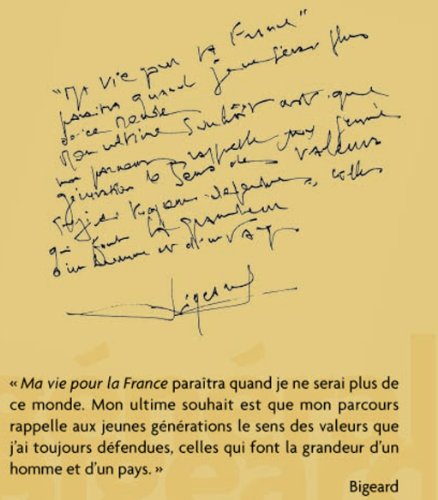 "Ma vie pour la France"
paraîtra quand je ne serai plus
de ce monde.
Mon ultime souhait est que
mon parcours rappelle aux jeunes
générations le sens des valeurs
que j'ai toujours défendues, celles
qui font la grandeur
d'un homme et d'un pays.
Bigeard
« Ma vie pour la France paraîtra quand je ne serai plus de
ce monde. Mon ultime souhait est que mon parcours
rappelle aux jeunes générations le sens des valeurs que
j'ai toujours défendues, celles qui font la grandeur d'un
homme et d'un pays. »
Bigeard